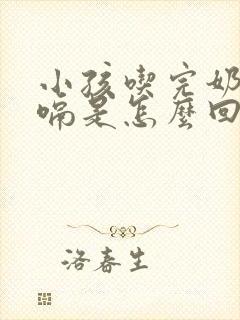 小孩喫完奶
嗝是怎麼回
洛春生